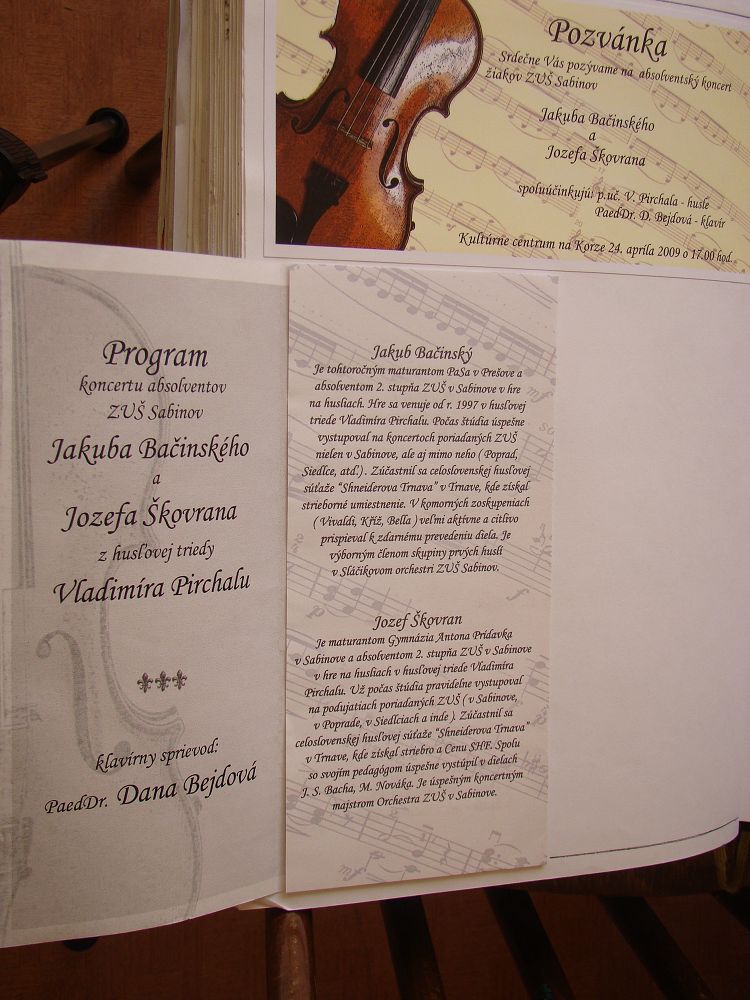 Pozvánka
Srdečne Vás pozývame na absolventský koncert
žiakov ZUŠ Sabinov
Jakuba Bačinského
a
Jozefa Škovrana
spoluúčinkujú: p.uč. V. Pirchala - husle
PaedDr. D. Bejdová - klavír
Kultúrne centrum na Korze 24. apríla 2009 o 17.00 hod.
Program
koncertu absolventov
ZUŠ Sabinov
Jakuba Bačinského
a
Jozefa Škovrana
z husľovej triedy
Vladimíra Pirchalu
klavírny sprievod:
PaedDr. Dana Bejdová
Jakub Bačinský
Je tohtoročným maturantom PaSa v Prešove a
absolventom 2. stupňa ZUŠ v Sabinove v hre
na husliach. Hre sa venuje od r. 1997 v husľovej
triede Vladimíra Pirchalu. Počas štúdia úspešne
vystupoval na koncertoch poriadaných ZUŠ
nielen v Sabinove, ale aj mimo neho ( Poprad,
Siedlce, atď.) . Zúčastnil sa celoslovenskej husľovej
súťaže "Shneiderova Trnava" v Trnave, kde získal
strieborné umiestnenie. V komorných zoskupeniach
( Vivaldi, Kříž, Bella ) veľmi aktívne a citlivo
prispieval k zdarnému prevedeniu diela. Je
výborným členom skupiny prvých huslí
v Sláčikovom orchestri ZUŠ Sabinov.
Jozef Škovran
Je maturantom Gymnázia Antona Prídavka
v Sabinove a absolventom 2. stupňa ZUŠ v Sabinove
v hre na husliach v husľovej triede Vladimíra
Pirchalu. Už počas štúdia pravidelne vystupoval
na podujatiach poriadaných ZUŠ ( v Sabinove,
v Poprade, v Siedlciach a inde ). Zúčastnil sa
celoslovenskej husľovej súťaže "Shneiderova Trnava"
v Trnave, kde získal striebro a Cenu SHF. Spolu
so svojím pedagógom úspešne vystúpil v dielach
J. S. Bacha, M. Nováka. Je úspešným koncertným
majstrom Orchestra ZUŠ v Sabinove.